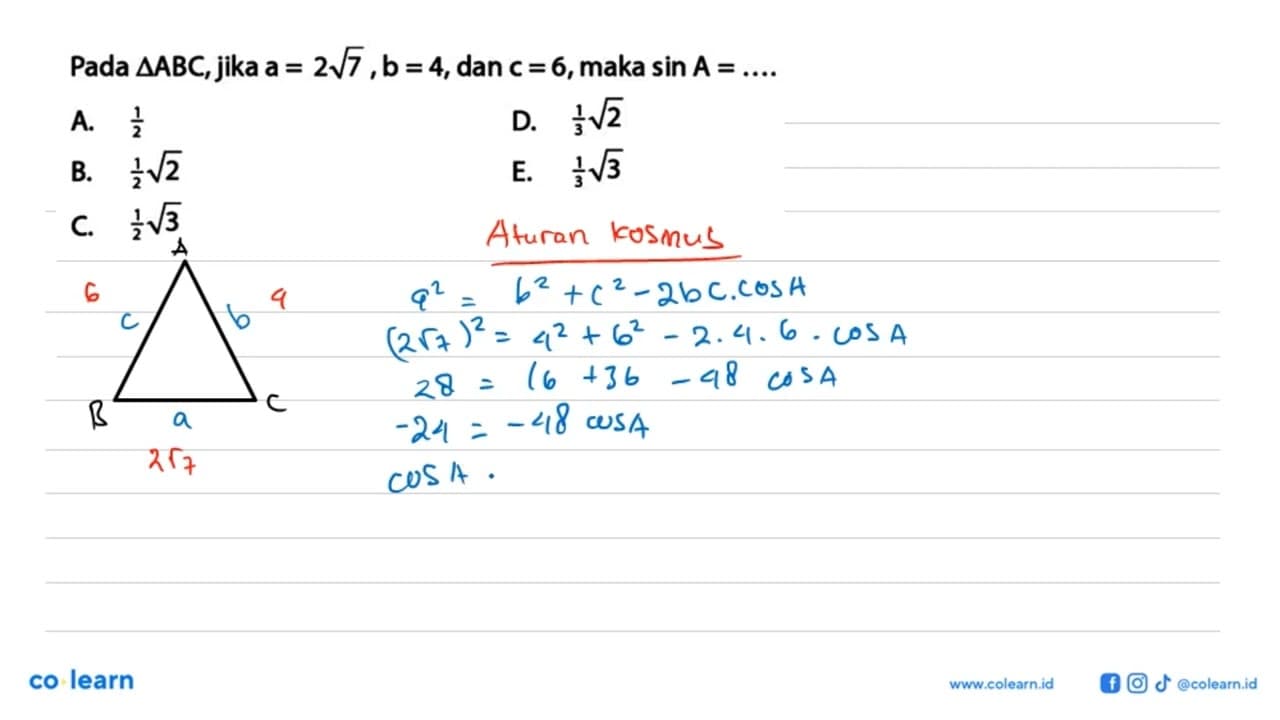 Pada ΔABC, jika a = 2√7, b = 4, dan c = 6, maka sin A = ....
A. 1/2
B. 1/2√2
C. 1/2√3
D. 1/3√2
E. 1/3√3
Aturan kosinus
A
6
c
b
4
B
a
C
2√7
a² = b² + c² - 2bc.cos A
(2√7)² = 4² + 6² - 2.4.6.cos A
28 = 16 + 36 - 48 cos A
-24 = -48 cos A
cos A .
co learn
www.colearn.id
@colearn.id